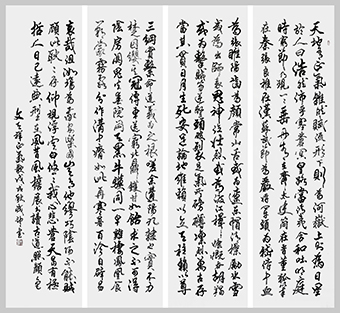 天地有正氣雜然賦流形下則為河嶽上則為日星
於人曰浩然沛乎塞蒼冥皇路當清夷含和吐明庭
時窮節乃見一一垂丹青在齊太史簡在晉董狐筆
在秦張良椎在漢蘇武節為嚴將軍頭為嵇侍中血
為張睢陽齒為顏常山舌或為遼東帽清操厲冰雪
或為出師表鬼神泣壯烈或為渡江楫慷慨吞胡羯
或為擊賊笏逆豎頭破裂是氣所磅礴凜烈萬古存
當其貫日月生死安足論地維賴以立天柱賴以尊
三綱實繫命道義為之根嗟予遘陽九隸也實不力
楚囚纓其冠傳車送窮北鼎鑊甘如飴求之不可得
陰房闃鬼火春院閟天黑牛驥同一皂雞棲鳳凰食
一朝蒙霧露分作溝中瘠如此再寒暑百沴自辟易
哀哉沮洳場為我安樂國豈有他繆巧陰陽不能賊
顧此耿耿在仰視浮雲白悠悠我心悲蒼天曷有極
哲人日已遠典刑在夙昔風簷展書讀古道照顏色
文天祥正氣歌